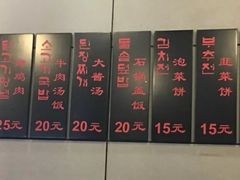 25元
소고기국밥
牛肉汤饭
20元
된장찌개
大酱汤
20元
돌솥덮밥
石锅盖饭
20元
김치전
泡菜饼
15元
부추전
韭菜饼
15元